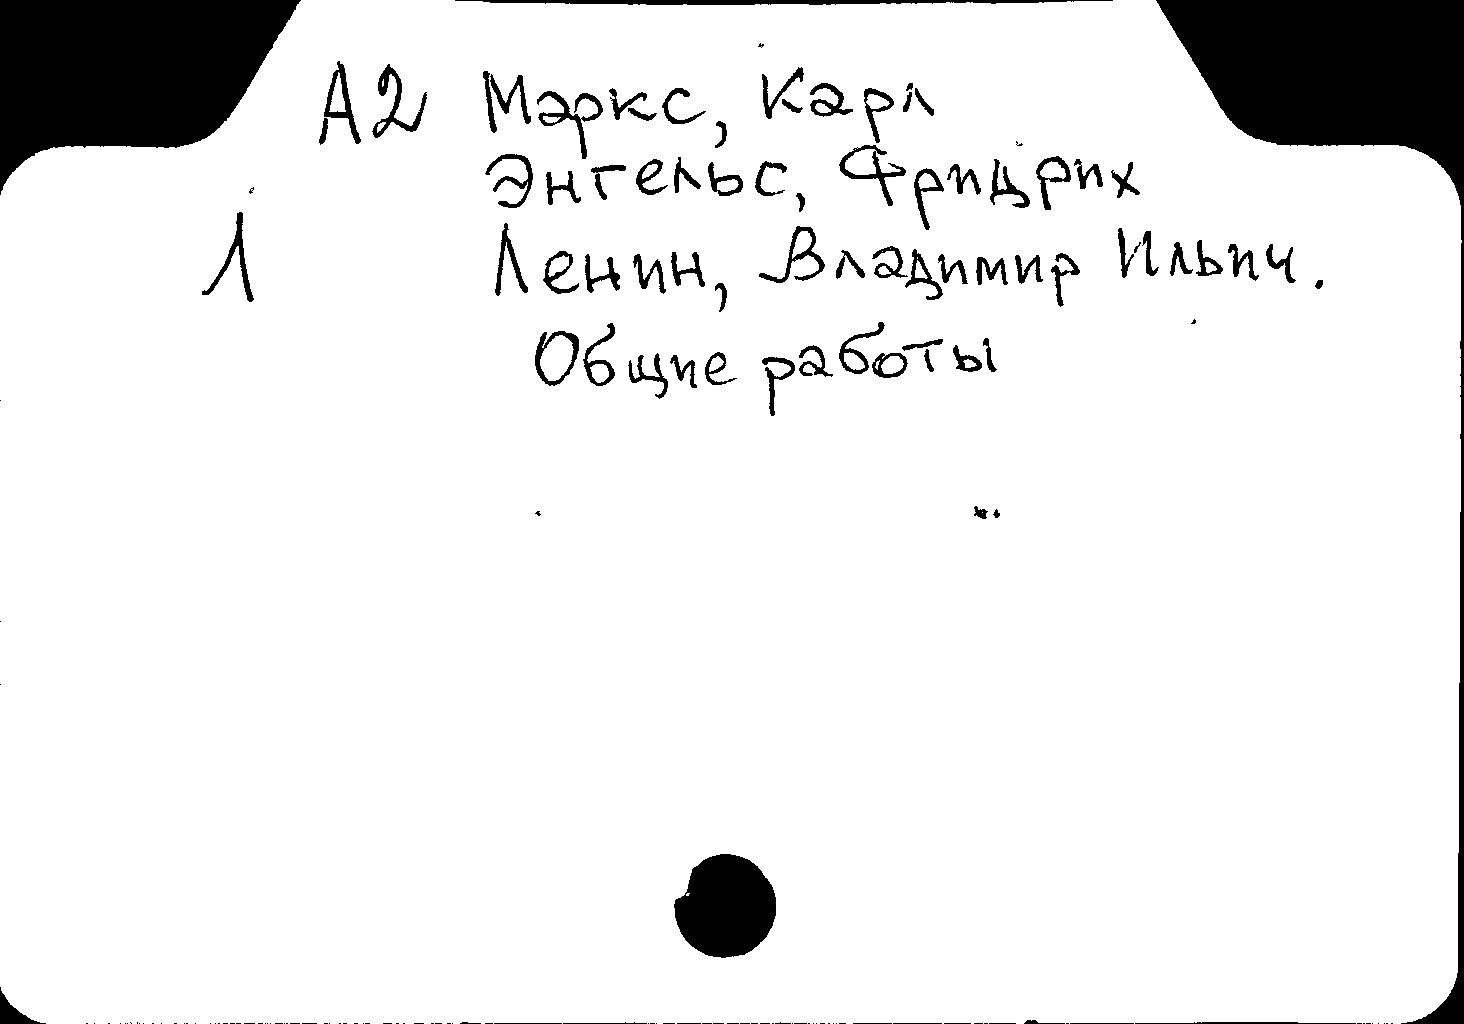 А2 Маркс, Карл
Энгельс, Фридрих
1 Ленин, Владимир Ильич.
Общие работы